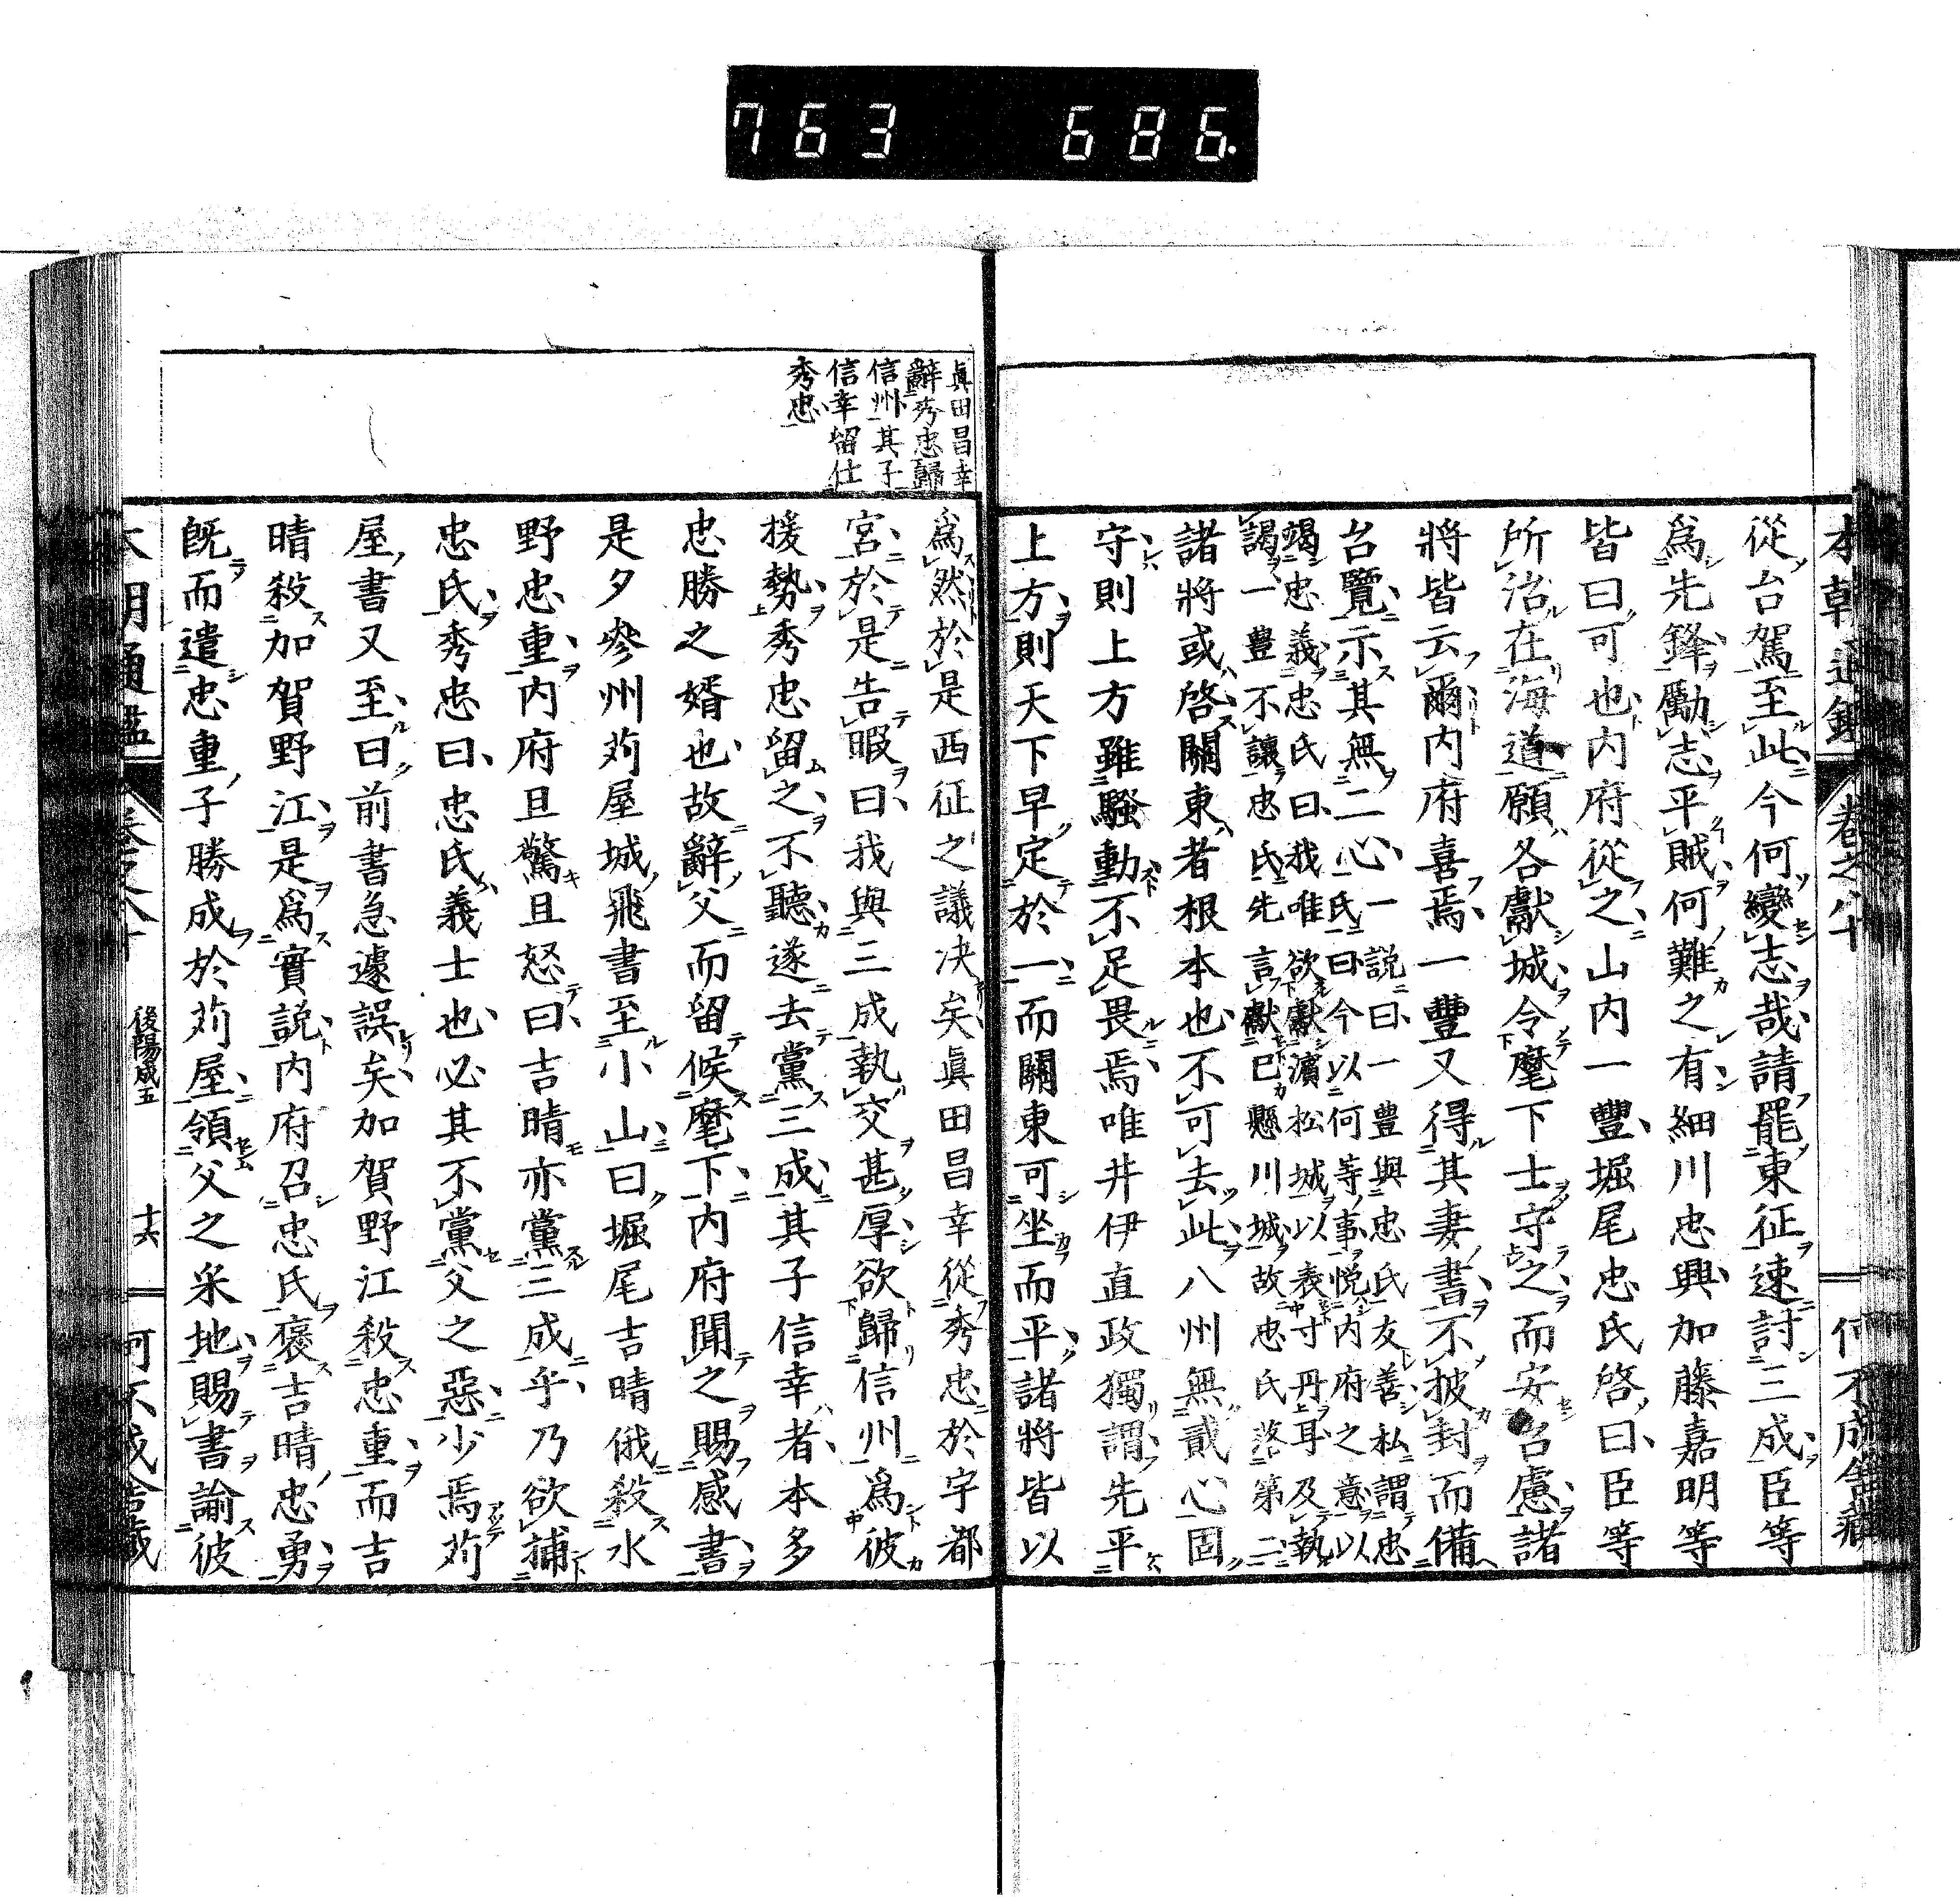 763 686.
本朝通鑑 卷之八十 何不成舍藏
從台駕至此今何變志哉請罷東征速討三成臣等
爲先鋒勵志平賊何難之有細川忠興加藤嘉明等
皆曰可也內府從之山內一豐堀尾忠氏啓曰臣等
所治在海道願各獻城令麾下士守之而安台慮諸
將皆云爾內府喜焉一豐又得其妻書不披封而備
台覽示其無二心一說曰一豊與忠氏友善私謂忠
氏曰今以何等事悅內府之意以
竭忠義忠氏曰我唯欲獻濱松城以表寸丹耳及執
謁一豊不讓忠氏先言獻已懸川城故忠氏落第二
諸將或啓關東者根本也不可去此八州無貳心固
守則上方雖騷動不足畏焉唯井伊直政獨謂先平
上方則天下早定於一而關東可坐而平諸將皆以
眞田昌幸
辭秀忠歸
信州其子
信幸留仕
秀忠
爲然於是西征之議决矣眞田昌幸從秀忠於宇都
宮於是告暇曰我與三成執交甚厚欲歸信州爲彼
援勢秀忠留之不聽遂去黨三成其子信幸者本多
忠勝之婿也故辭父而留候麾下內府聞之賜感書
是夕參州苅屋城飛書至小山曰堀尾吉晴俄殺水
野忠重內府且驚且怒曰吉晴亦黨三成乎乃欲捕
忠氏秀忠曰忠氏義士也必其不黨父之惡少焉苅
屋書又至曰前書急遽誤矣加賀野江殺忠重而吉
晴殺加賀野江是爲實說內府召忠氏褒吉晴忠勇
旣而遣忠重子勝成於苅屋領父之采地賜書諭彼
本朝通鑑 卷之八十 後陽成五 十六 何不成舍藏